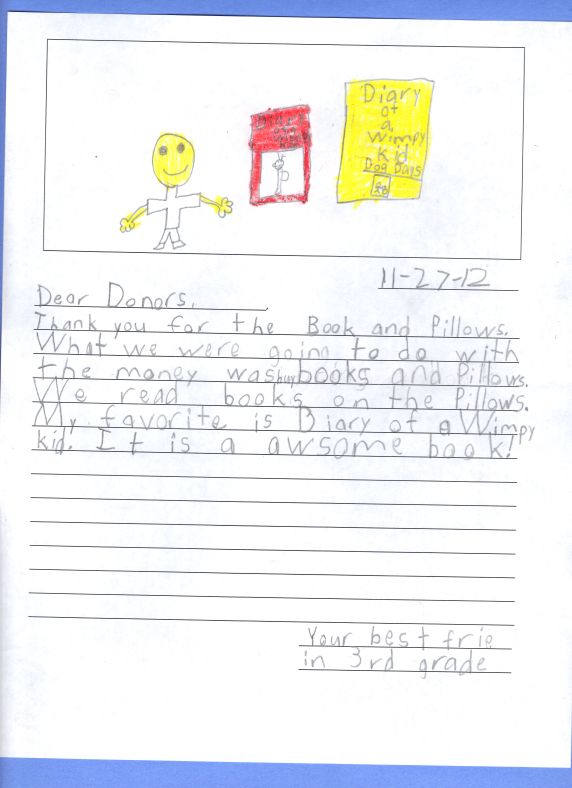 Diary
of
a
Wimpy
Kid
Dog Days
11-27-12
Dear Donors,
Thank you for the Book and Pillows.
What we were going to do with
the money was buy books and Pillows.
We read books on the Pillows.
My favorite is Diary of a Wimpy
kid. It is a awsome book!
Your best frie
in 3rd grade